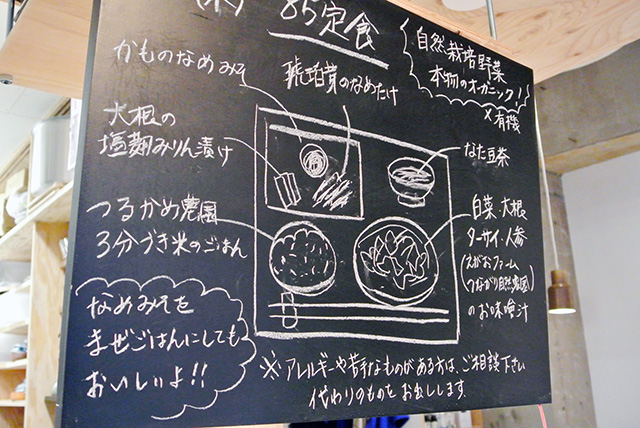 (木) 85定食
自然栽培野菜
本物のオーガニック!
×有機
かものなめみそ
琥珀茸のなめたけ
大根の
塩麹みりん漬け
なた豆茶
つるかめ農園
3分づき米のごはん
白菜・大根
ターサイ・人参
(えがおファーム
つながり自然農園)
のお味噌汁
なめみそを
まぜごはんにしても
おいしいよ!!
※アレルギーや苦手なものがある方は、ご相談下さい
代わりのものをお出しします。